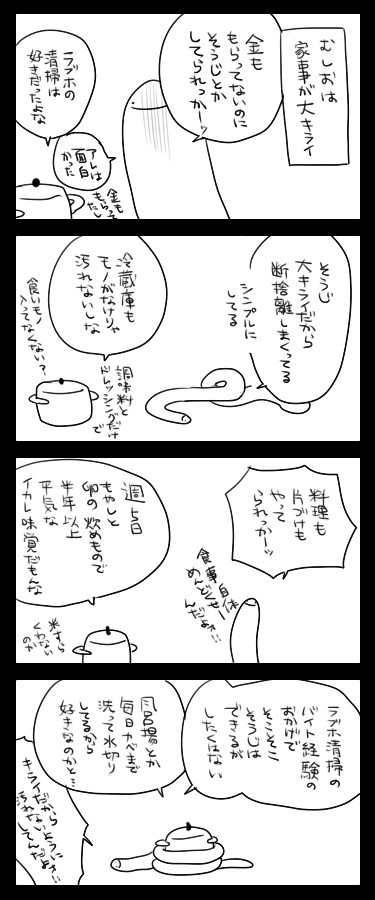 むしおは
家事が大キライ
金も
もらってないのに
そうじとか
してられっかーッ
ラブホの
清掃は
好きだったよな
アレは
面白
かった
金も
もらって
たし
そうじ
大キライだから
断捨離しまくってる
シンプルに
してる
冷蔵庫も
モノがなけりゃ
汚れないしな
調味料と
ドレッシングだけ
で
食いモノ
入ってなくない?
料理も
片づけも
やって
られっかーッ
食事自体
めんどくせー
んだよォ!!
週5日
もやしと
卵の炒めもので
半年以上
平気な
イカレ味覚だもんな
米すら
くわない
のか
ラブホ清掃の
バイト経験の
おかげで
そこそこ
そうじは
できるが
したくはない
風呂場とか
毎日カベまで
洗って水切り
してるから
好きなのかと…
キライだから
汚れないようにォ!!
してんだよ